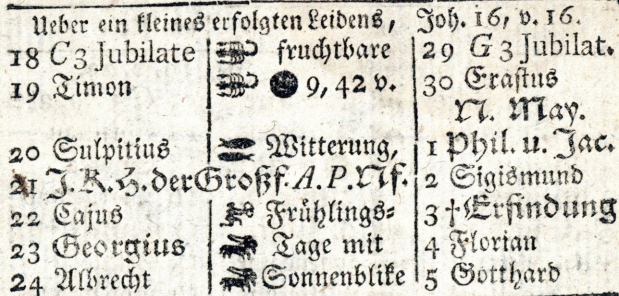 Ueber ein kleines erfolgten Leidens, Joh. 16, v. 16.
18 C 3 Jubilate fruchtbare 29 G 3 Jubilat.
19 Timon 9, 42 v. 30 Erastus
N. May.
20 Sulpitius Witterung, 1 Phil. u. Jac.
21 J. K. H. der Großf. A. P. Nf. 2 Sigismund
22 Cajus Frühlings= 3 †Erfindung
23 Georgius Tage mit 4 Florian
24 Albrecht Sonnenblike 5 Gotthard